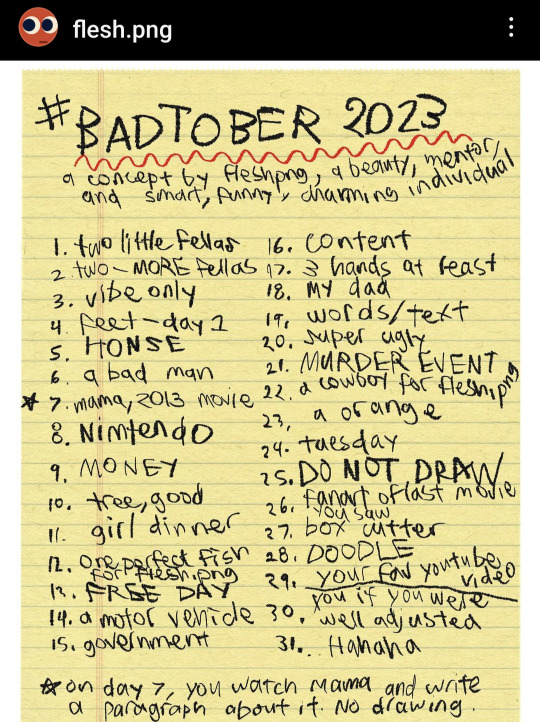 flesh.png
#BADTOBER 2023
a concept by fleshpng, a beauty, mentor,
and smart, funny, charming individual
1. two little fellas
2. two-MORE fellas
3. vibe only
4. feet-day 1
5. HONSE
6. a bad man
☆ 7. mama, 2013 movie
8. Nimtendo
9. MONEY
10. tree, good
11. girl dinner
12. one perfect fish
for flesh.png
13. FREE DAY
14. a motor vehicle
15. government
16. content
17. 3 hands at least
18. My dad
19. words/text
20. super ugly
21. MURDER EVENT
22. a cowboy for flesh.png
23. a orange
24. tuesday
25. DO NOT DRAW
26. fanart of last movie
you saw
27. box cutter
28. DOODLE
29. your fav youtube
video
30. you if you were
well adjusted
31. Hahaha
☆ on day 7, you watch Mama and write
a paragraph about it. No drawing.